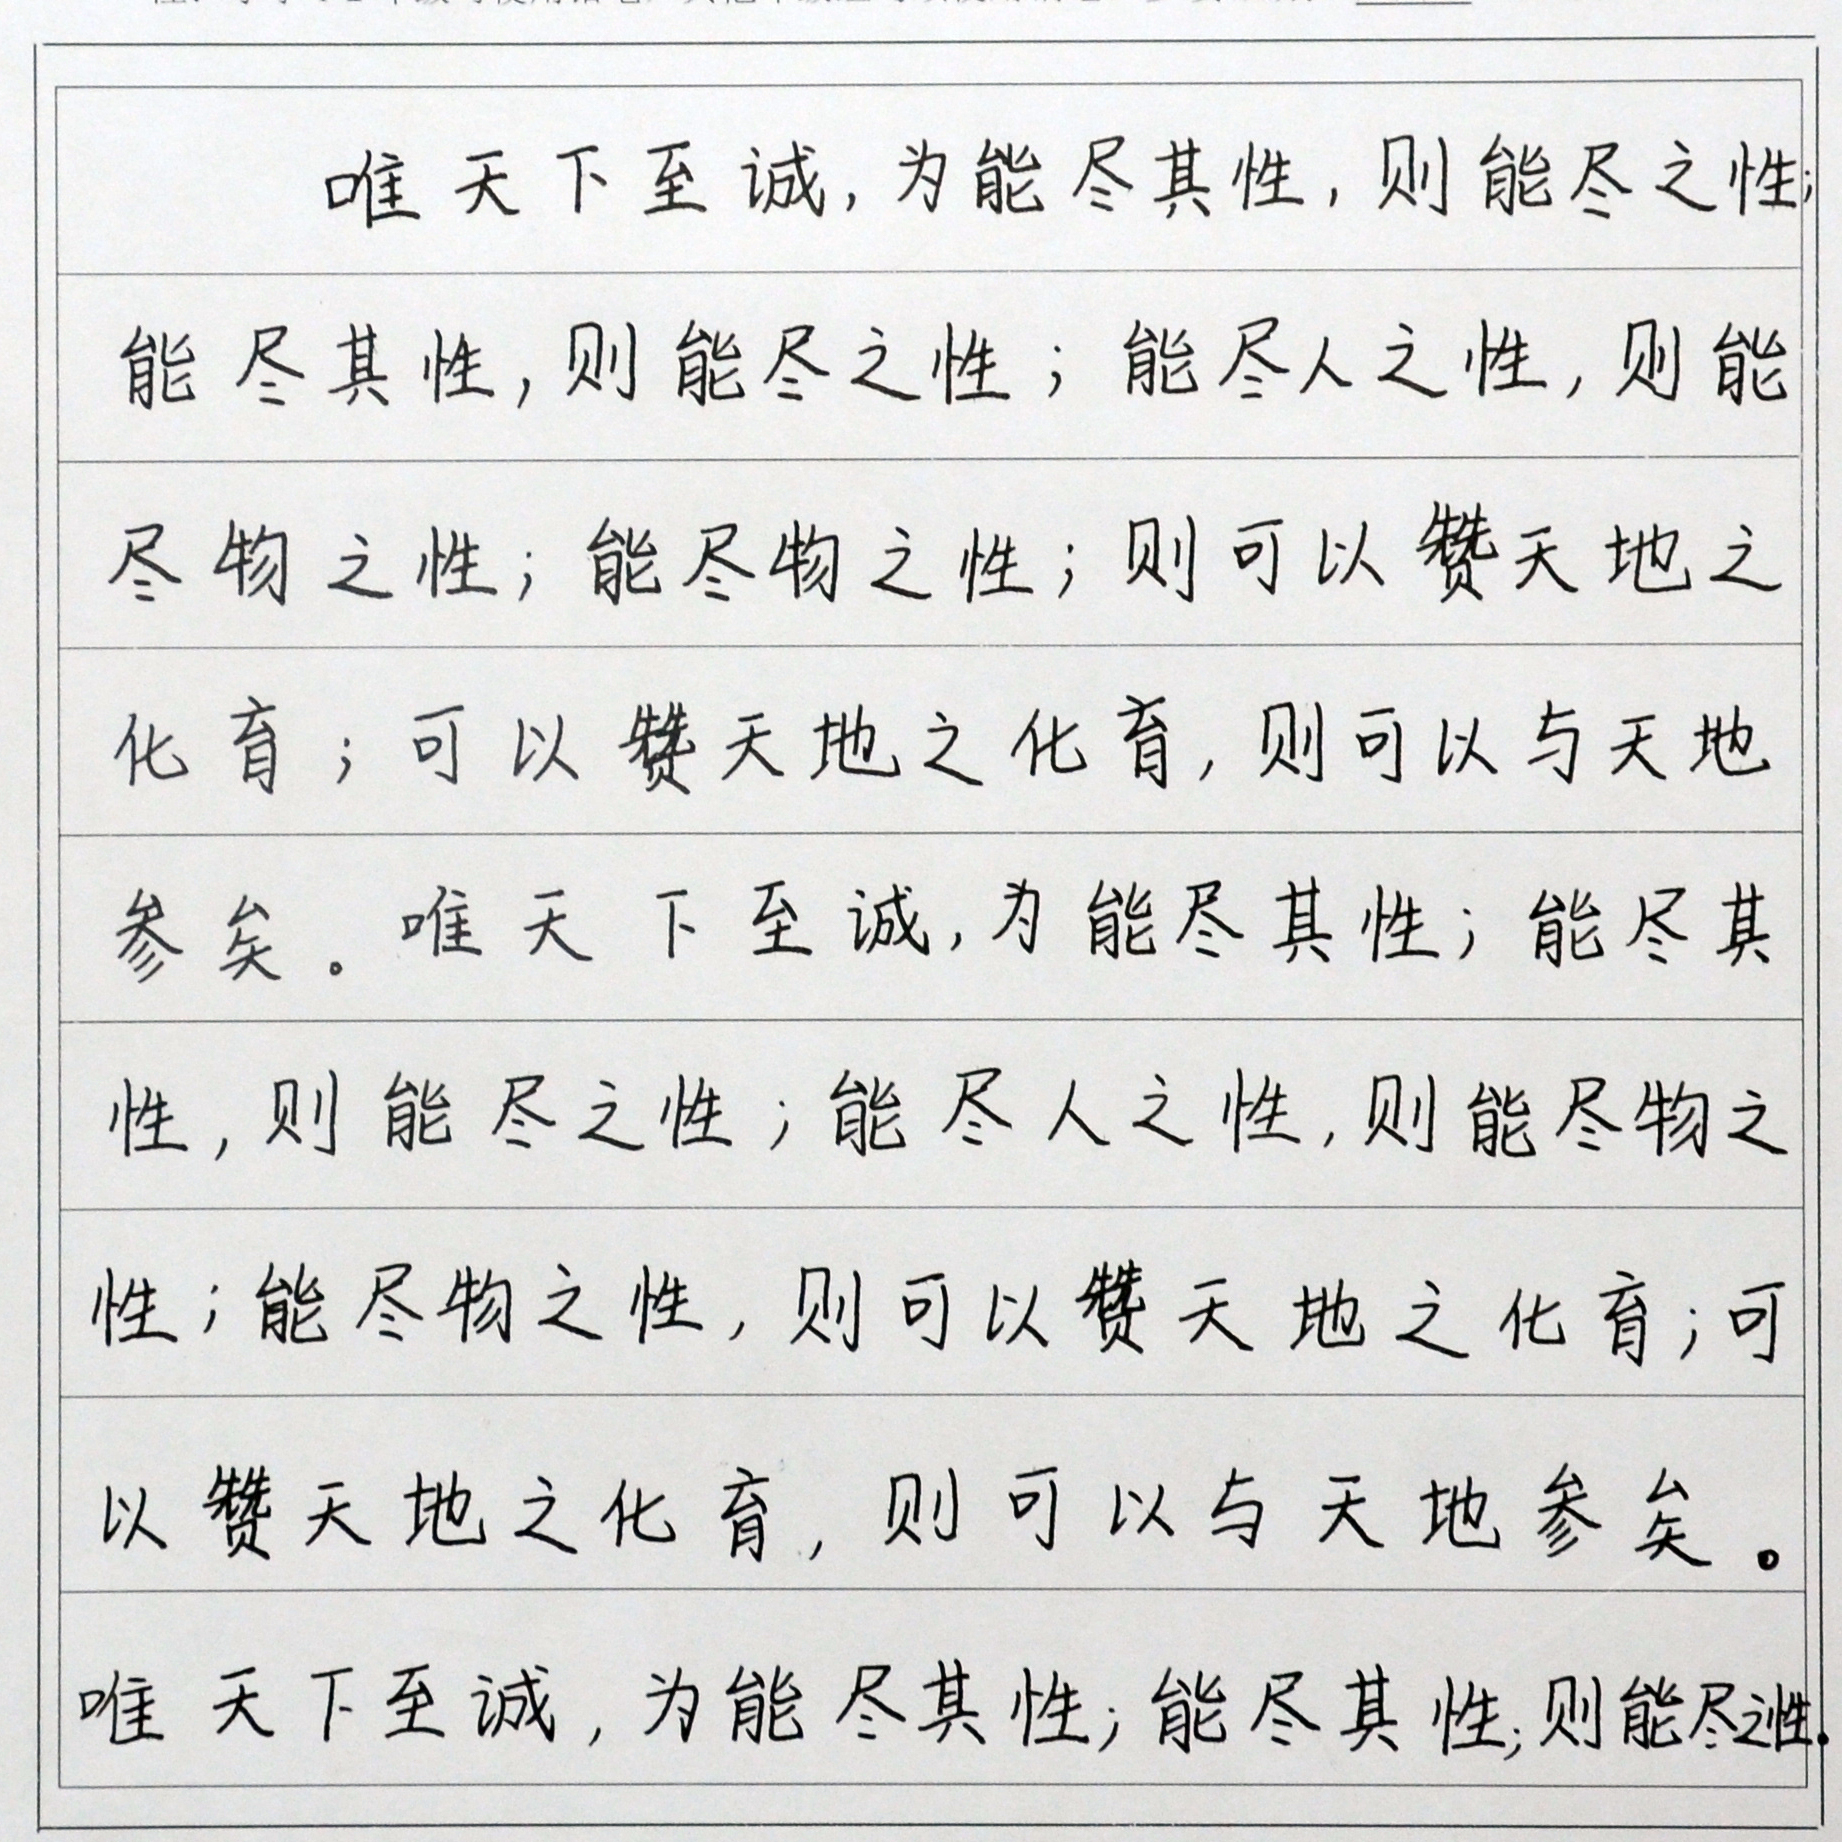 唯天下至诚,为能尽其性,则能尽之性;
能尽其性,则能尽之性;能尽人之性,则能
尽物之性;能尽物之性;则可以赞天地之
化育;可以赞天地之化育,则可以与天地
参矣。唯天下至诚,为能尽其性;能尽其
性,则能尽之性;能尽人之性,则能尽物之
性;能尽物之性,则可以赞天地之化育;可
以赞天地之化育,则可以与天地参矣。
唯天下至诚,为能尽其性;能尽其性;则能尽之性.